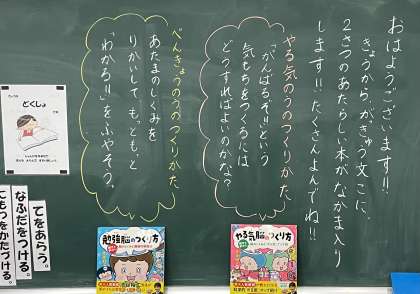 おはようございます!!
きょうから、がきゅう文こに、
2さつのあたらしい本がなかま入り
します!!たくさんよんでね!!
やる気のうのつくりかた
「がんばるぞ!!」という
気もちをつくるには
どうすればよいのかな?
べんきょうのうのつくりかた
あたまのしくみを
りかいして、もっともっと
「わかる!!」をふやそう。
どくしょ
てをあらう。
なふだをつける。
にもつをかたづける。
やる気脳のつくり方
勉強脳のつくり方